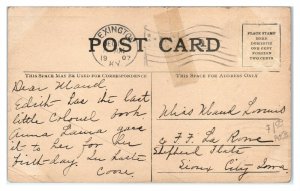 LEXINGTON
19 07
KY.
POST CARD
PLACE STAMP HERE
DOMESTIC ONE CENT
FOREIGN TWO CENTS
THIS SPACE MAY BE USED FOR CORRESPONDENCE
THIS SPACE FOR ADDRESS ONLY.
Dear Maud
Edith has the last
little Colonel book
Anna Laura gave
it to her for her
birthday. In haste
Miss Maud Loomis
Flats
Sioux City Iowa